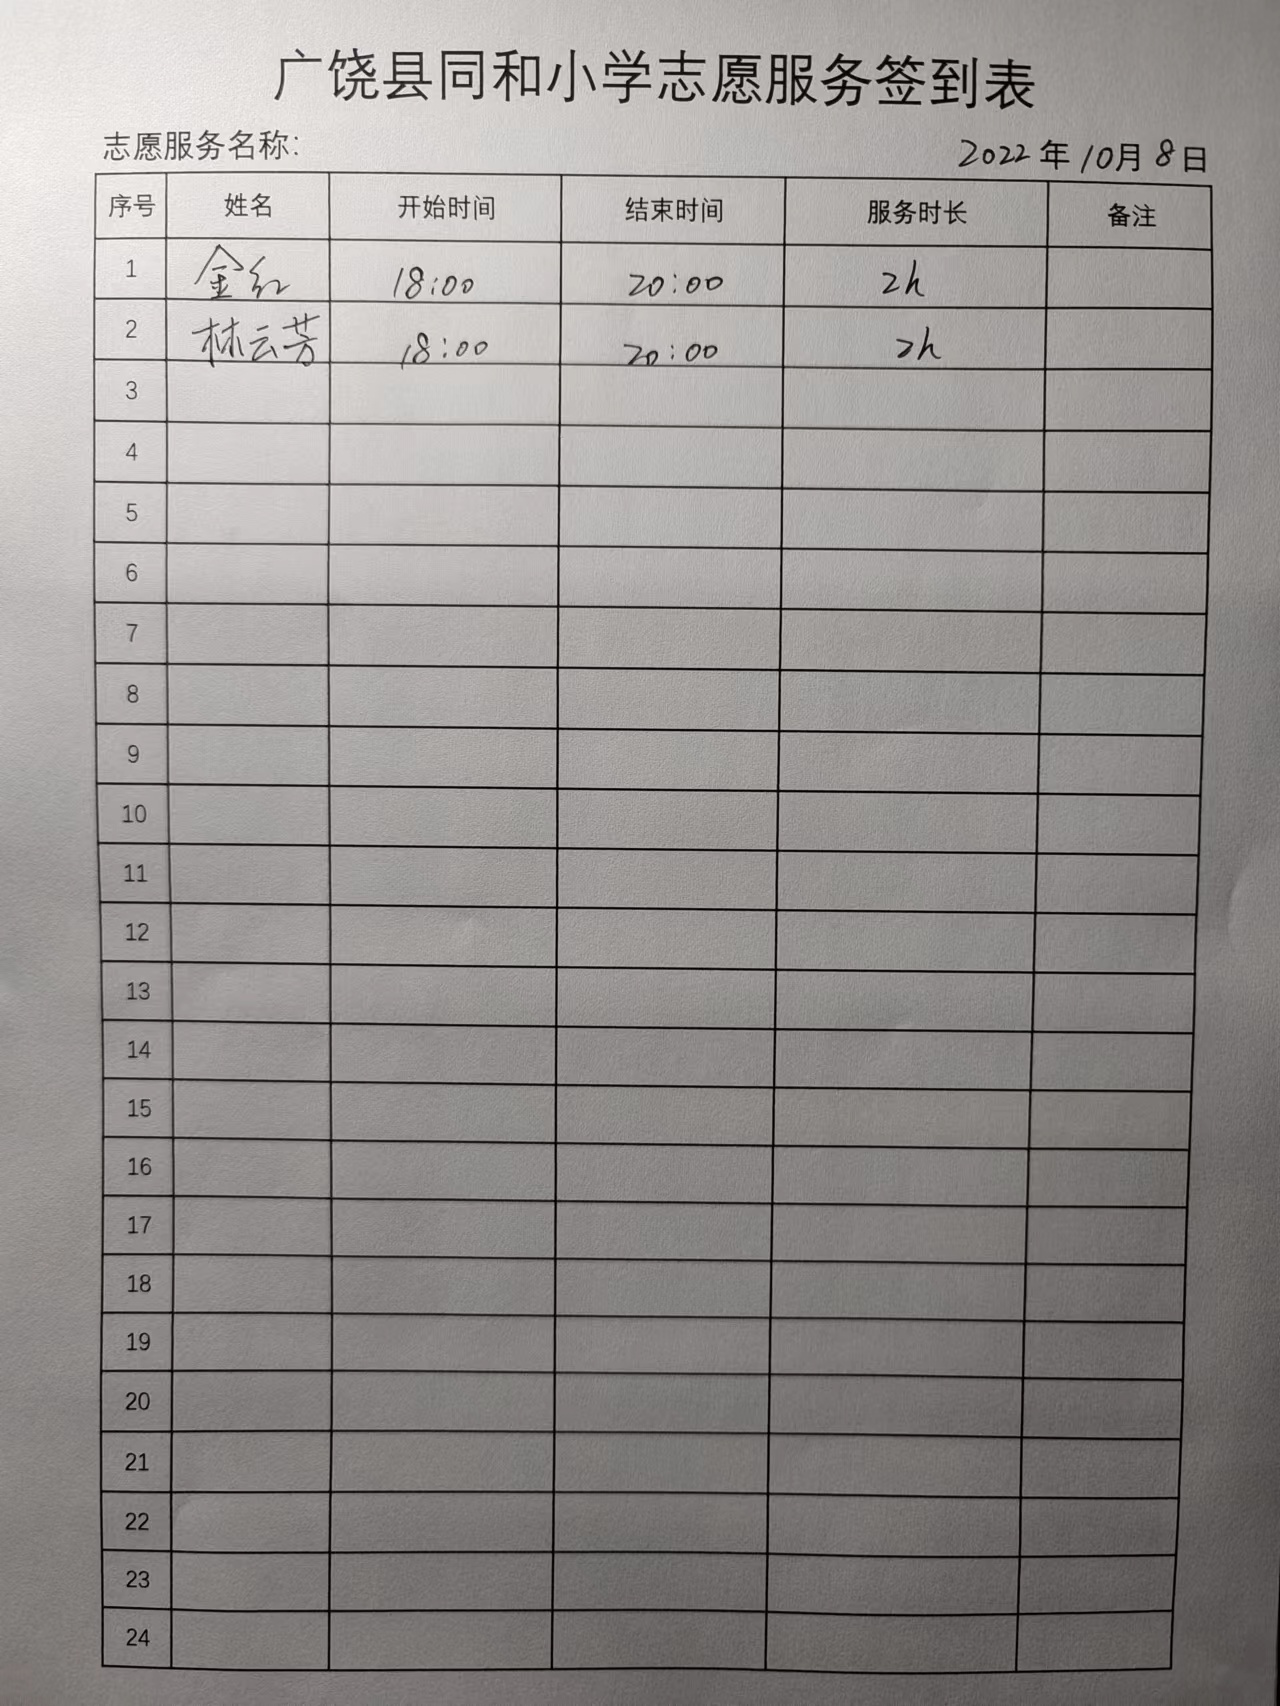 广饶县同和小学志愿服务签到表
志愿服务名称：
2022年10月8日
序号 姓名 开始时间 结束时间 服务时长 备注
1 金红 18:00 20:00 2h
2 林云芳 18:00 20:00 2h
3
4
5
6
7
8
9
10
11
12
13
14
15
16
17
18
19
20
21
22
23
24